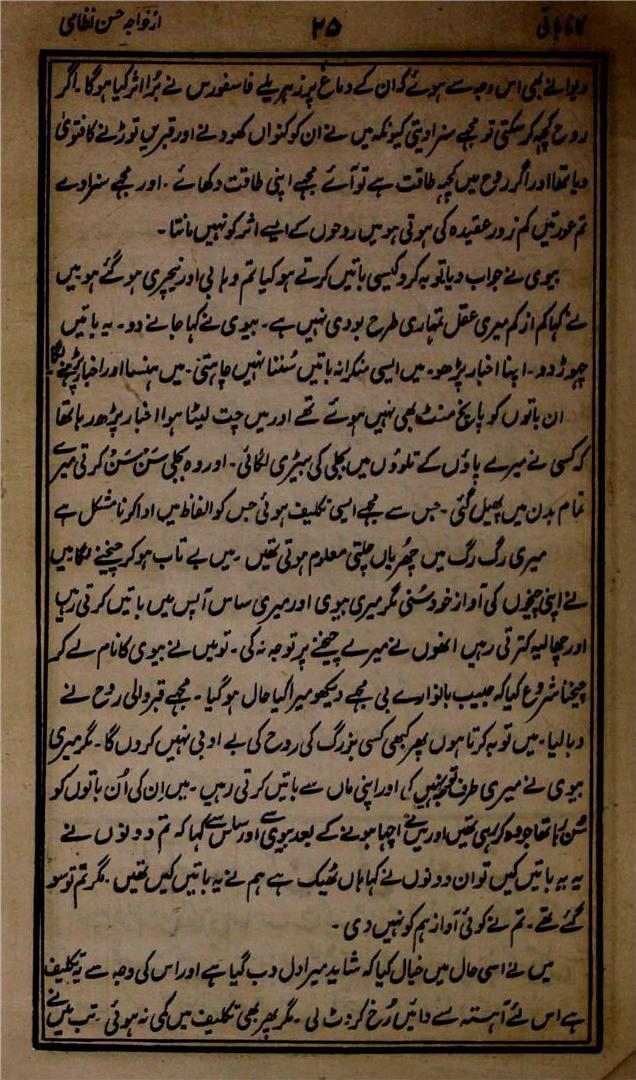 کانا باتی ۲۵ از خواجہ حسن نظامی
دیوانے بھی اس وجہ سے ہوئے کہ ان کے دماغ پر زہریلے فاسفورس نے بُرا اثر کیا ہوگا۔ اگر
روح کچھ کر سکتی تو مجھے سزا دیتی کیونکہ میں نے ان کو کنواں کھودنے اور قبریں توڑنے کا فتویٰ
دیا تھا اور اگر روح میں کچھ طاقت ہے تو آئے مجھے اپنی طاقت دکھائے۔ اور مجھے سزا دے
تم عورتیں کم زور عقیدہ کی ہوتی ہو میں روحوں کے ایسے اثر کو نہیں مانتا۔
بیوی نے جواب دیا توبہ کرو کیسی باتیں کرتے ہو کیا تم وہابی اور نیچری ہو گئے ہو میں
نے کہا کم از کم میری عقل تمہاری طرح بودی نہیں ہے۔ بیوی نے کہا جانے دو۔ یہ باتیں
چھوڑ دو۔ اپنا اخبار پڑھو۔ میں ایسی منکرانہ باتیں سُننا نہیں چاہتی۔ میں ہنسا اور اخبار پڑھنے لگا
ان باتوں کو پانچ منٹ بھی نہیں ہوئے تھے اور میں چت لیٹا ہوا اخبار پڑھ رہا تھا
کہ کسی نے میرے پاؤں کے تلوؤں میں بجلی کی بیٹری لگائی۔ اور وہ بجلی سَنْ سَنْ کرتی میرے
تمام بدن میں پھیل گئی۔ جس سے مجھے ایسی تکلیف ہوئی جس کو الفاظ میں ادا کرنا مشکل ہے
میری رگ رگ میں چھریاں چلتی معلوم ہوتی تھیں۔ میں بے تاب ہو کر چیخنے لگا میں
نے اپنی چیخوں کی آواز خود سُنی مگر میری بیوی اور میری ساس آپس میں باتیں کرتی رہیں
اور چھالیہ کترتی رہیں انھوں نے میرے چیخنے پر توجہ نہ کی۔ تو میں نے بیوی کا نام لے کر
چیخنا شروع کیا کہ حبیب بانو ارے بی مجھے دیکھو میرا کیا حال ہو گیا۔ مجھے قبر والی روح نے
دبا لیا۔ میں توبہ کرتا ہوں پھر کبھی کسی بزرگ کی روح کی بے ادبی نہیں کروں گا۔ مگر میری
بیوی نے میری طرف توجہ نہیں کی اور اپنی ماں سے باتیں کرتی رہیں۔ میں اِن کی اُن باتوں کو
سُن رہا تھا جو وہ کر رہی تھیں اور میں نے اچھا ہونے کے بعد بیوی سے اور ساس سے کہا کہ تم دونوں نے
یہ یہ باتیں کیں تو ان دونوں نے کہا ہاں ٹھیک ہے ہم نے یہ باتیں کیں تھیں۔ مگر تم تو سو
گئے تھے۔ تم نے کوئی آواز ہم کو نہیں دی۔
میں نے اسی حال میں خیال کیا کہ شاید میرا دل دب گیا ہے اور اس کی وجہ سے یہ تکلیف
ہے اس لئے آہستہ سے دائیں رُخ کروٹ لی۔ مگر پھر بھی تکلیف میں کمی نہ ہوئی۔ تب میں نے